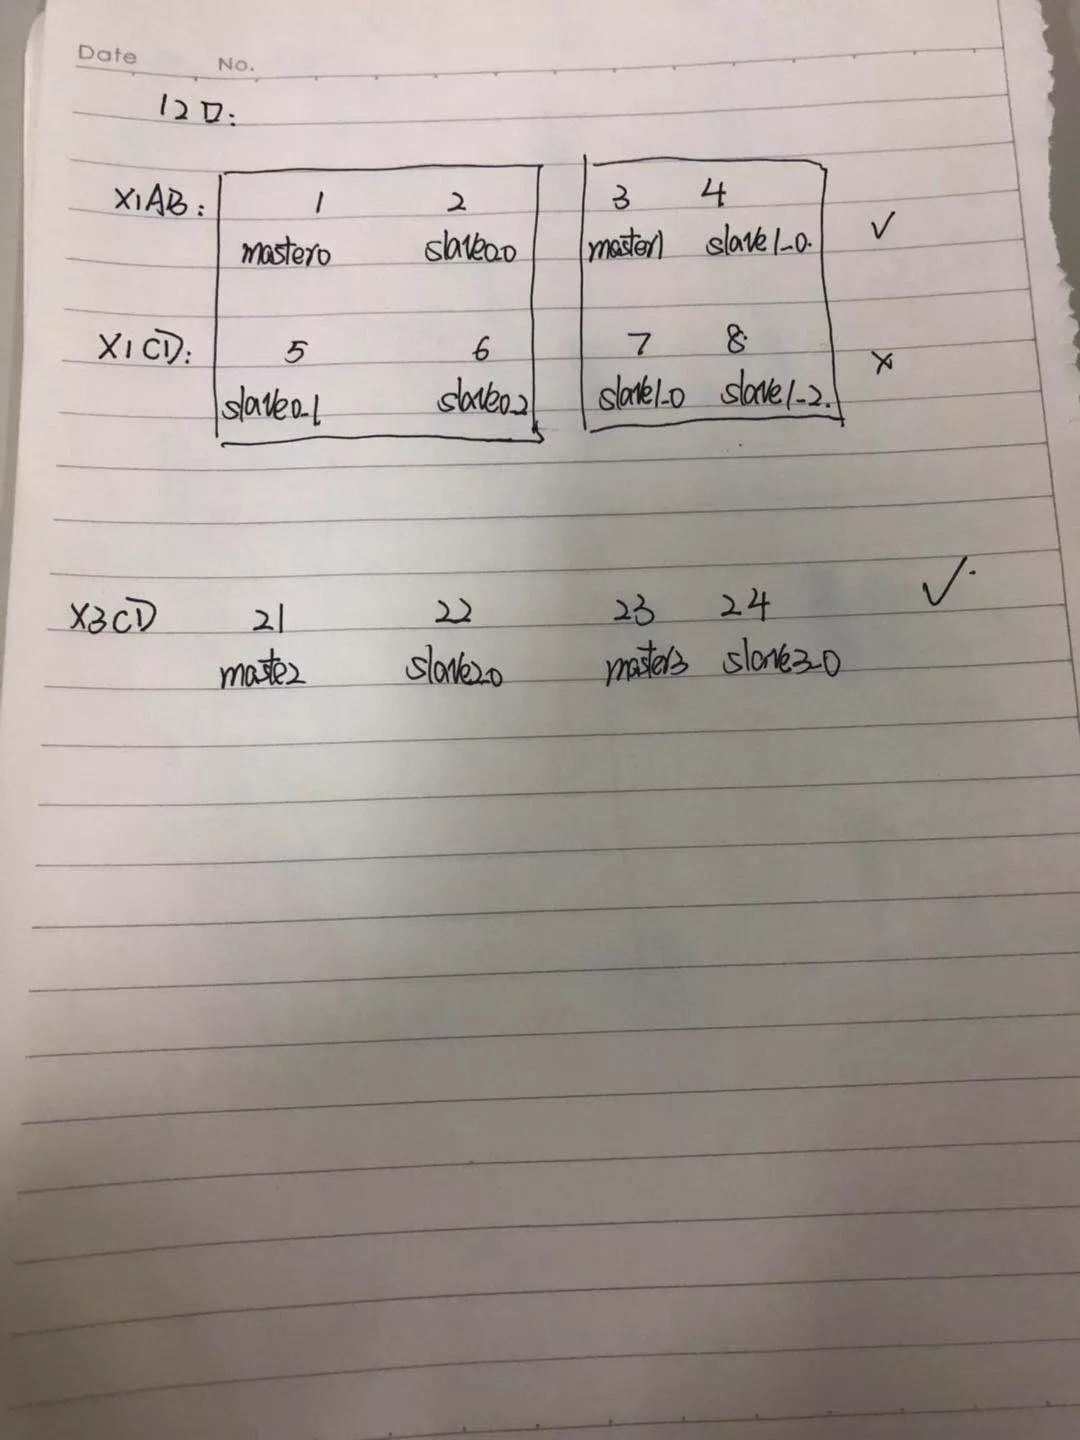 Date No.
12口:
X1AB: 1 2 3 4 ✓
master0 slave0.0 master1 slave1-0.
X1CD: 5 6 7 8 ×
slave0-1 slave0-2 slave1-0 slave1-2.
X3CD 21 22 23 24 ✓.
maste2 slave2-0 master3 slave3-0